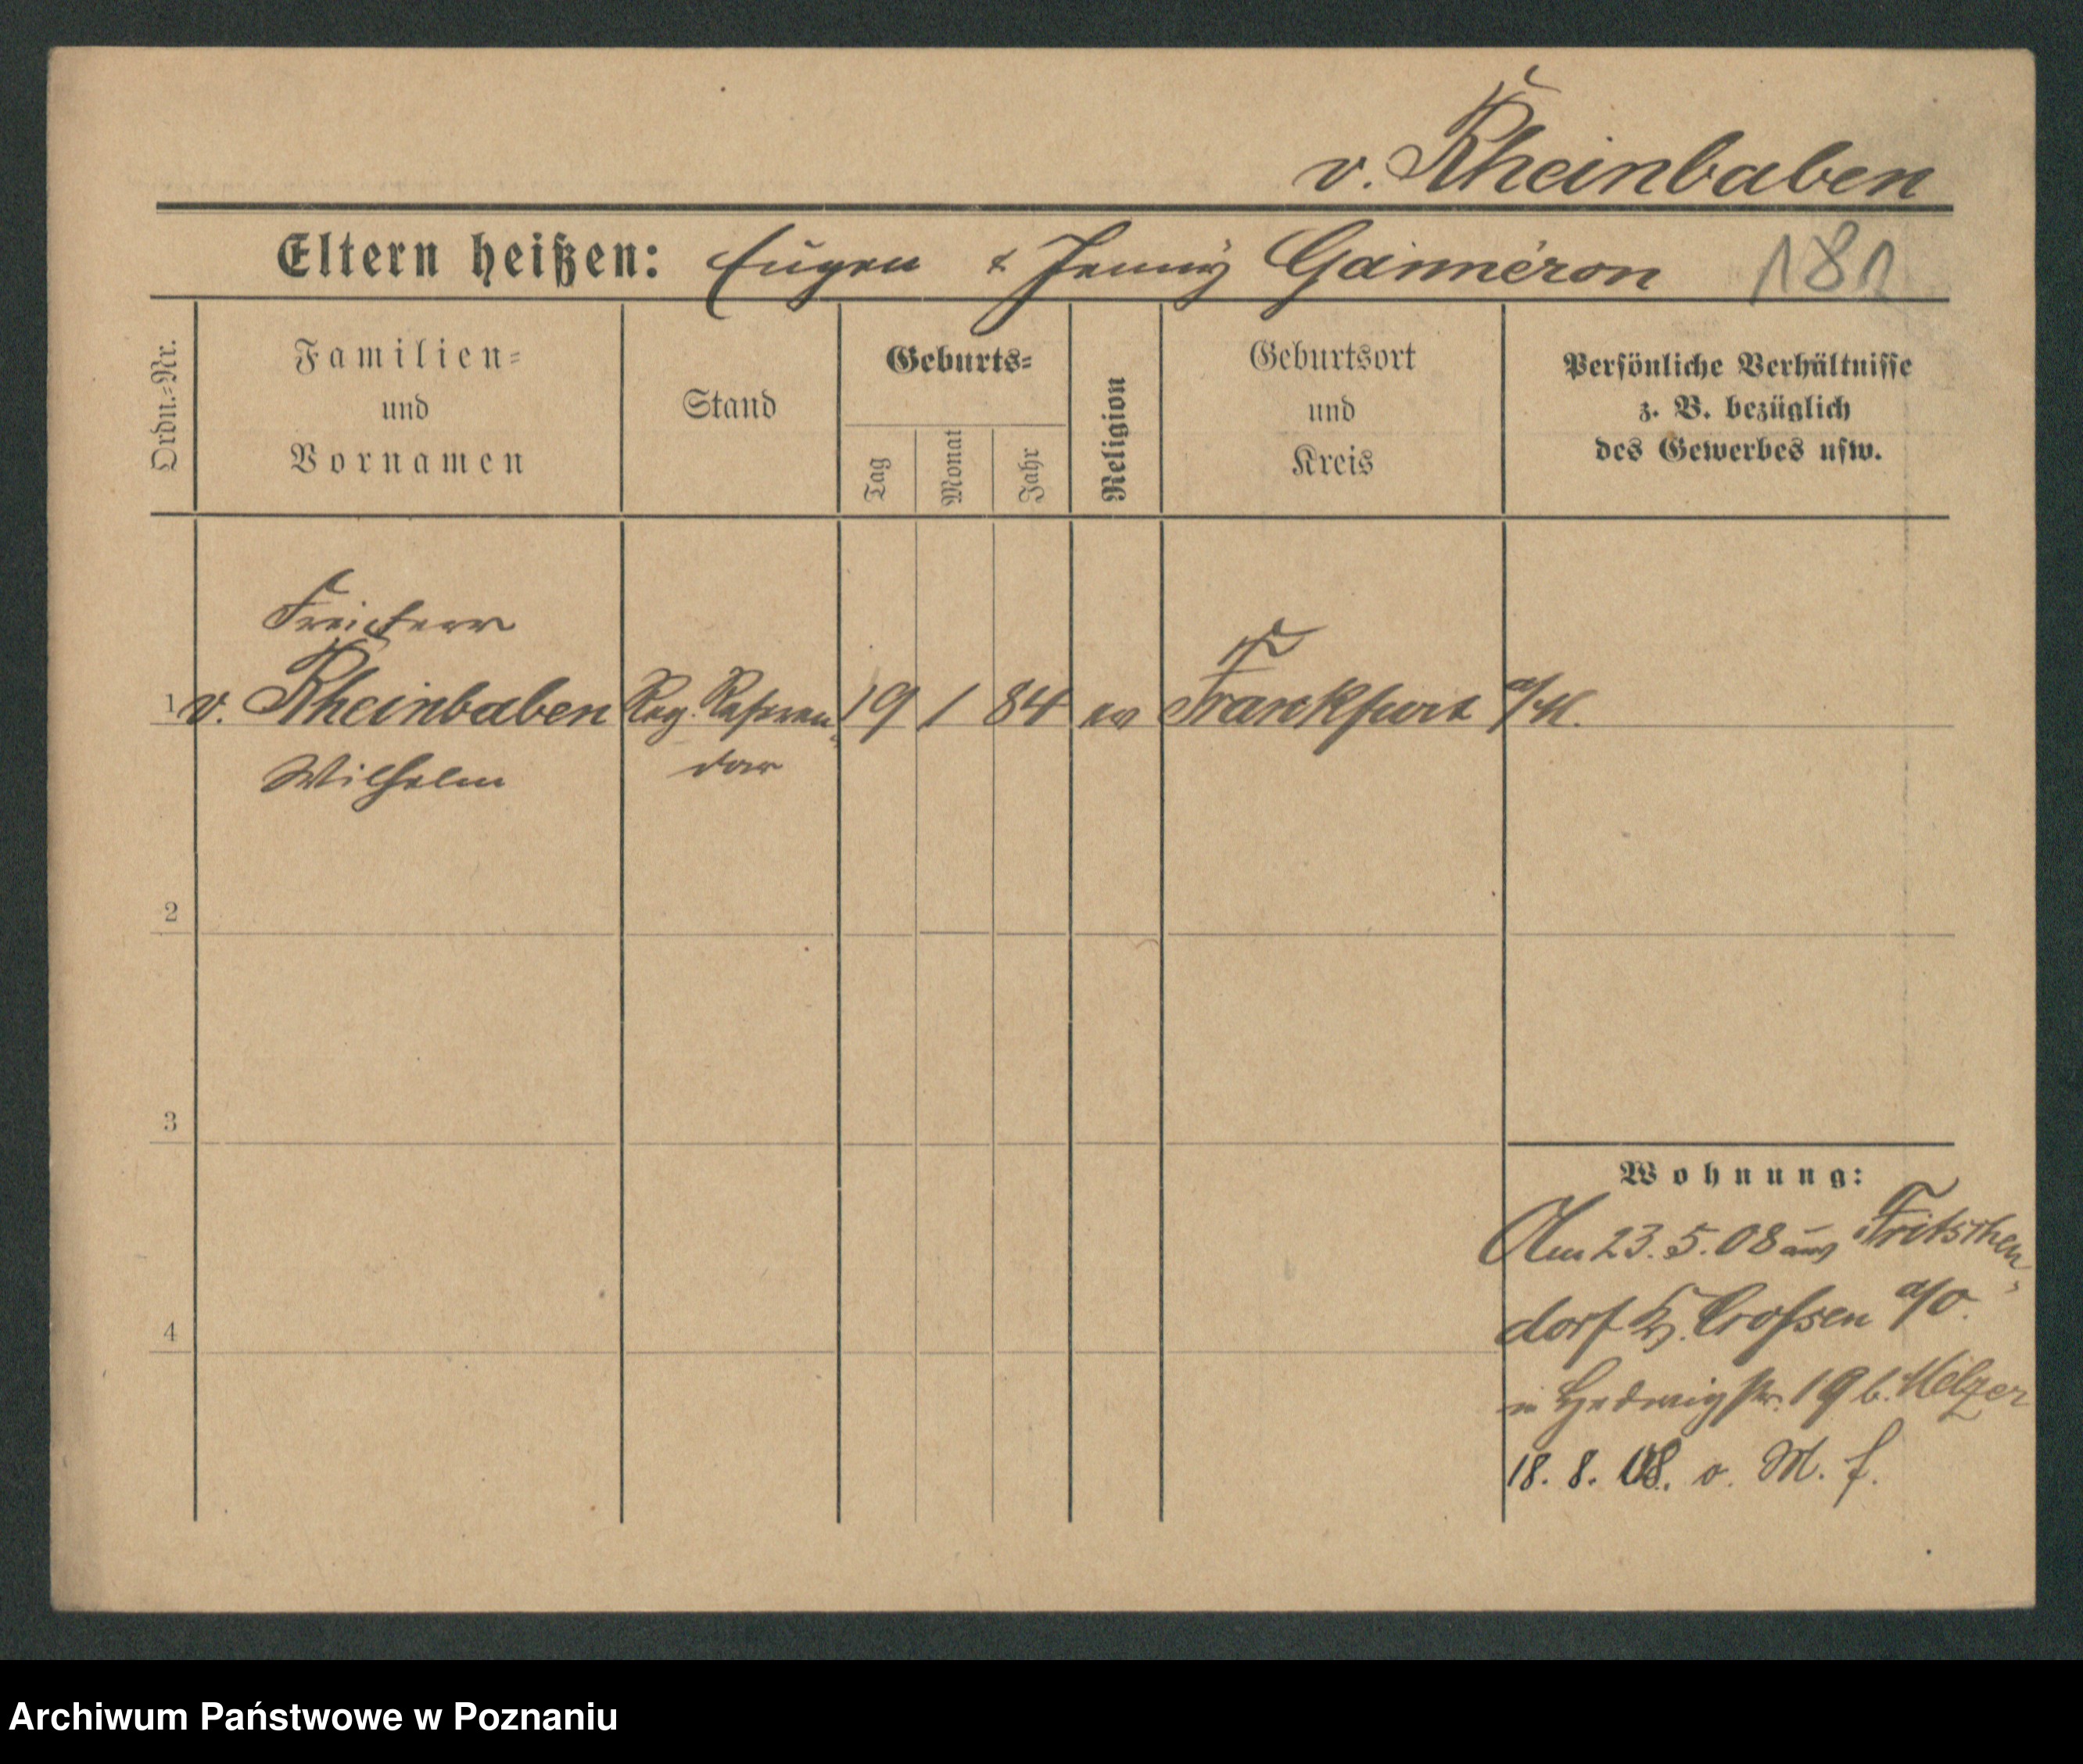 v. Rheinbaben
Eltern heißen: Eugen & Jenny Ganneron 181
Ordn.=Nr.
Familien=
und
Vornamen
Stand
Geburts=
Tag
Monat
Jahr
Religion
Geburtsort
und
Kreis
Persönliche Verhältnisse
z. B. bezüglich
des Gewerbes usw.
Freiherr
1 v. Rheinbaben Reg. Referen= 19 1 84 ev Frankfurt a/M.
Wilhelm dar
2
3
4
Wohnung:
Am 23.5.08 aus Fritschen=
dorf Kr. Crossen a/O.
in Hedwigstr. 19 b. Melzer
18. 8. 08. v. M. f.
Archiwum Państwowe w Poznaniu